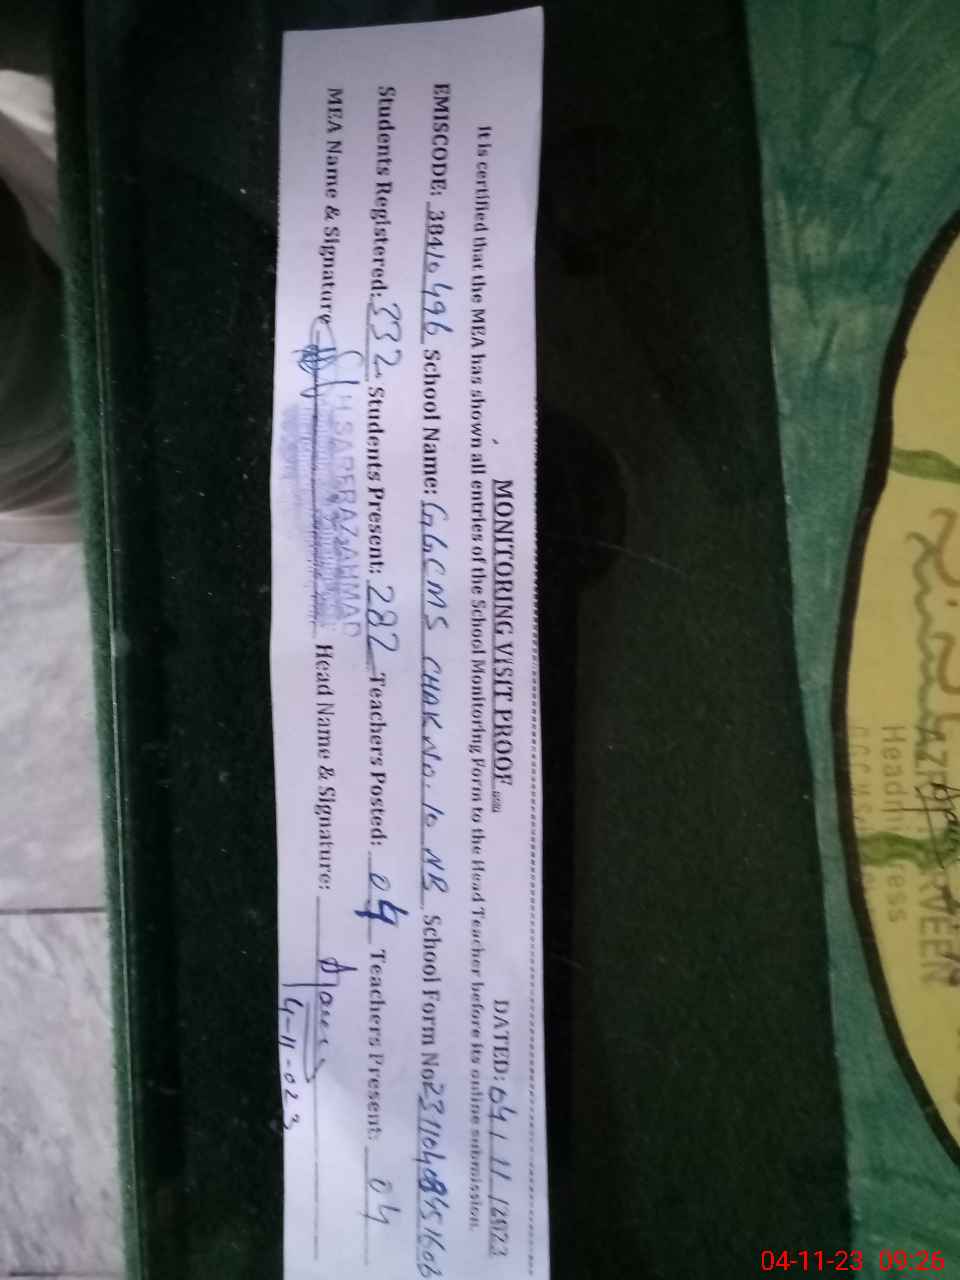 MONITORING VISIT PROOF DATED: 04/11/2023
It is certified that the MEA has shown all entries of the School Monitoring Form to the Head Teacher before its online submission.
EMISCODE: 38410496 School Name: GGCMS CHAK No. 10 NB School Form No
Students Registered: 332 Students Present: 282 Teachers Posted: 04 Teachers Present: 04
MEA Name & Signature AHMAD Head Name & Signature:
4-11-023
Headmistress
04-11-23 09:26